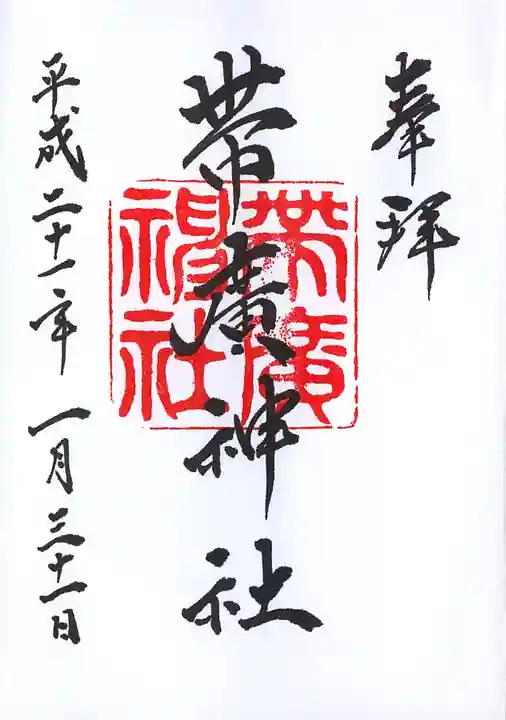 奉拝
帯廣神社
帯廣
神社
平成二十一年一月三十一日